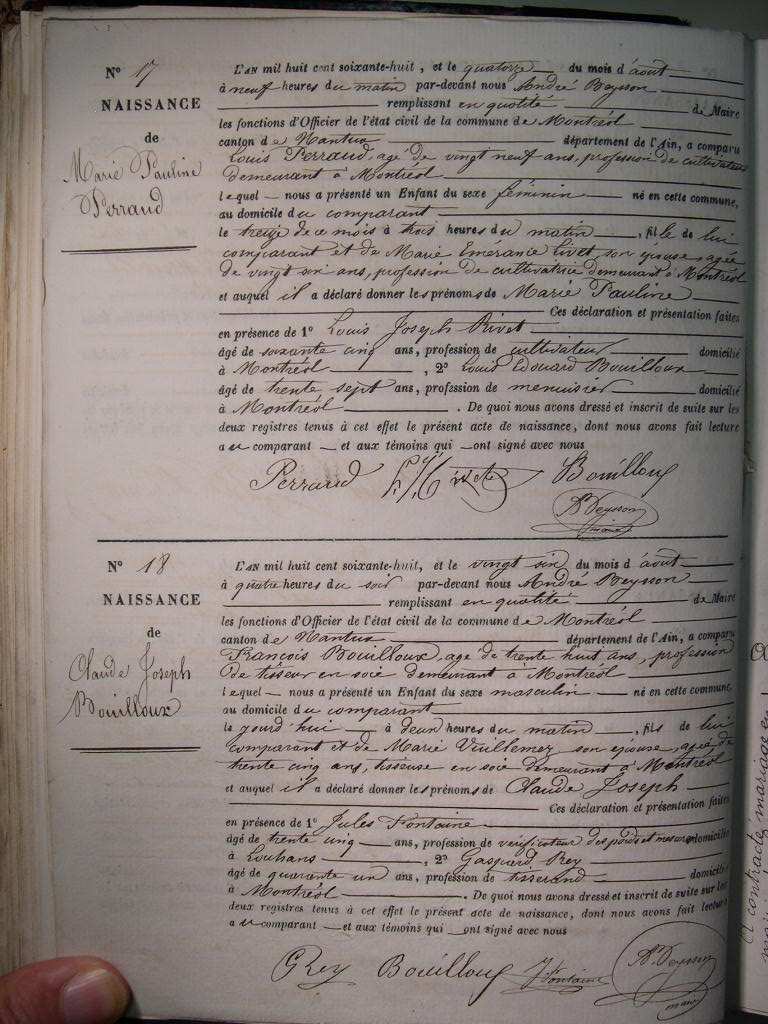 N° 17
NAISSANCE
de
Marie Pauline
Perraud
L'AN mil huit cent soixante-huit, et le quatorze du mois d'août
à neuf heures du matin par-devant nous André Beysson
remplissant en qualité de Maire
les fonctions d'Officier de l'état civil de la commune de Montréal
canton de Nantua département de l'Ain, a comparu
Louis Perraud, agé de vingt neuf ans, profession de cultivateur
demeurant à Montréal
lequel nous a présenté un Enfant du sexe féminin né en cette commune,
au domicile du comparant
le treize de ce mois à trois heures du matin, fille de lui
comparant et de Marie Emérancie Livet, son épouse, agée
de vingt six ans, profession de cultivatrice demeurant à Montréal
et auquel il a déclaré donner les prénoms de Marie Pauline
Ces déclaration et présentation faites
en présence de 1° Louis Joseph Rivet
âgé de soixante cinq ans, profession de cultivateur domicilié
à Montréal, 2° Louis Edouard Bouilloux
âgé de trente sept ans, profession de menuisier domicilié
à Montréal. De quoi nous avons dressé et inscrit de suite sur les
deux registres tenus à cet effet le présent acte de naissance, dont nous avons fait lecture
au comparant et aux témoins qui ont signé avec nous
Perraud Bouilloux
A. Beysson
maire
N° 18
NAISSANCE
de
Claude Joseph
Bouilloux
L'AN mil huit cent soixante-huit, et le vingt six du mois d'août
à quatre heures du soir par-devant nous André Beysson
remplissant en qualité de Maire
les fonctions d'Officier de l'état civil de la commune de Montréal
canton de Nantua département de l'Ain, a comparu
François Bouilloux, agé de trente huit ans, profession
de tisseur en soie demeurant à Montréal
lequel nous a présenté un Enfant du sexe masculin né en cette commune
au domicile du comparant
le jourd'hui à deux heures du matin, fils de lui
comparant et de Marie Vuillemez son épouse, agée de
trente cinq ans, tisseuse en soie demeurant à Montréal
et auquel il a déclaré donner les prénoms de Claude Joseph
Ces déclaration et présentation faites
en présence de 1° Jules Fontaine
âgé de trente cinq ans, profession de vérificateur des poids et mesures domicilié
à Louhans, 2° Gaspard Rey
âgé de quarante un ans, profession de tisserand domicilié
à Montréal. De quoi nous avons dressé et inscrit de suite sur les
deux registres tenus à cet effet le présent acte de naissance, dont nous avons fait lecture
au comparant et aux témoins qui ont signé avec nous
G Rey Bouilloux J. Fontaine A. Beysson
maire
A contracté mariage en